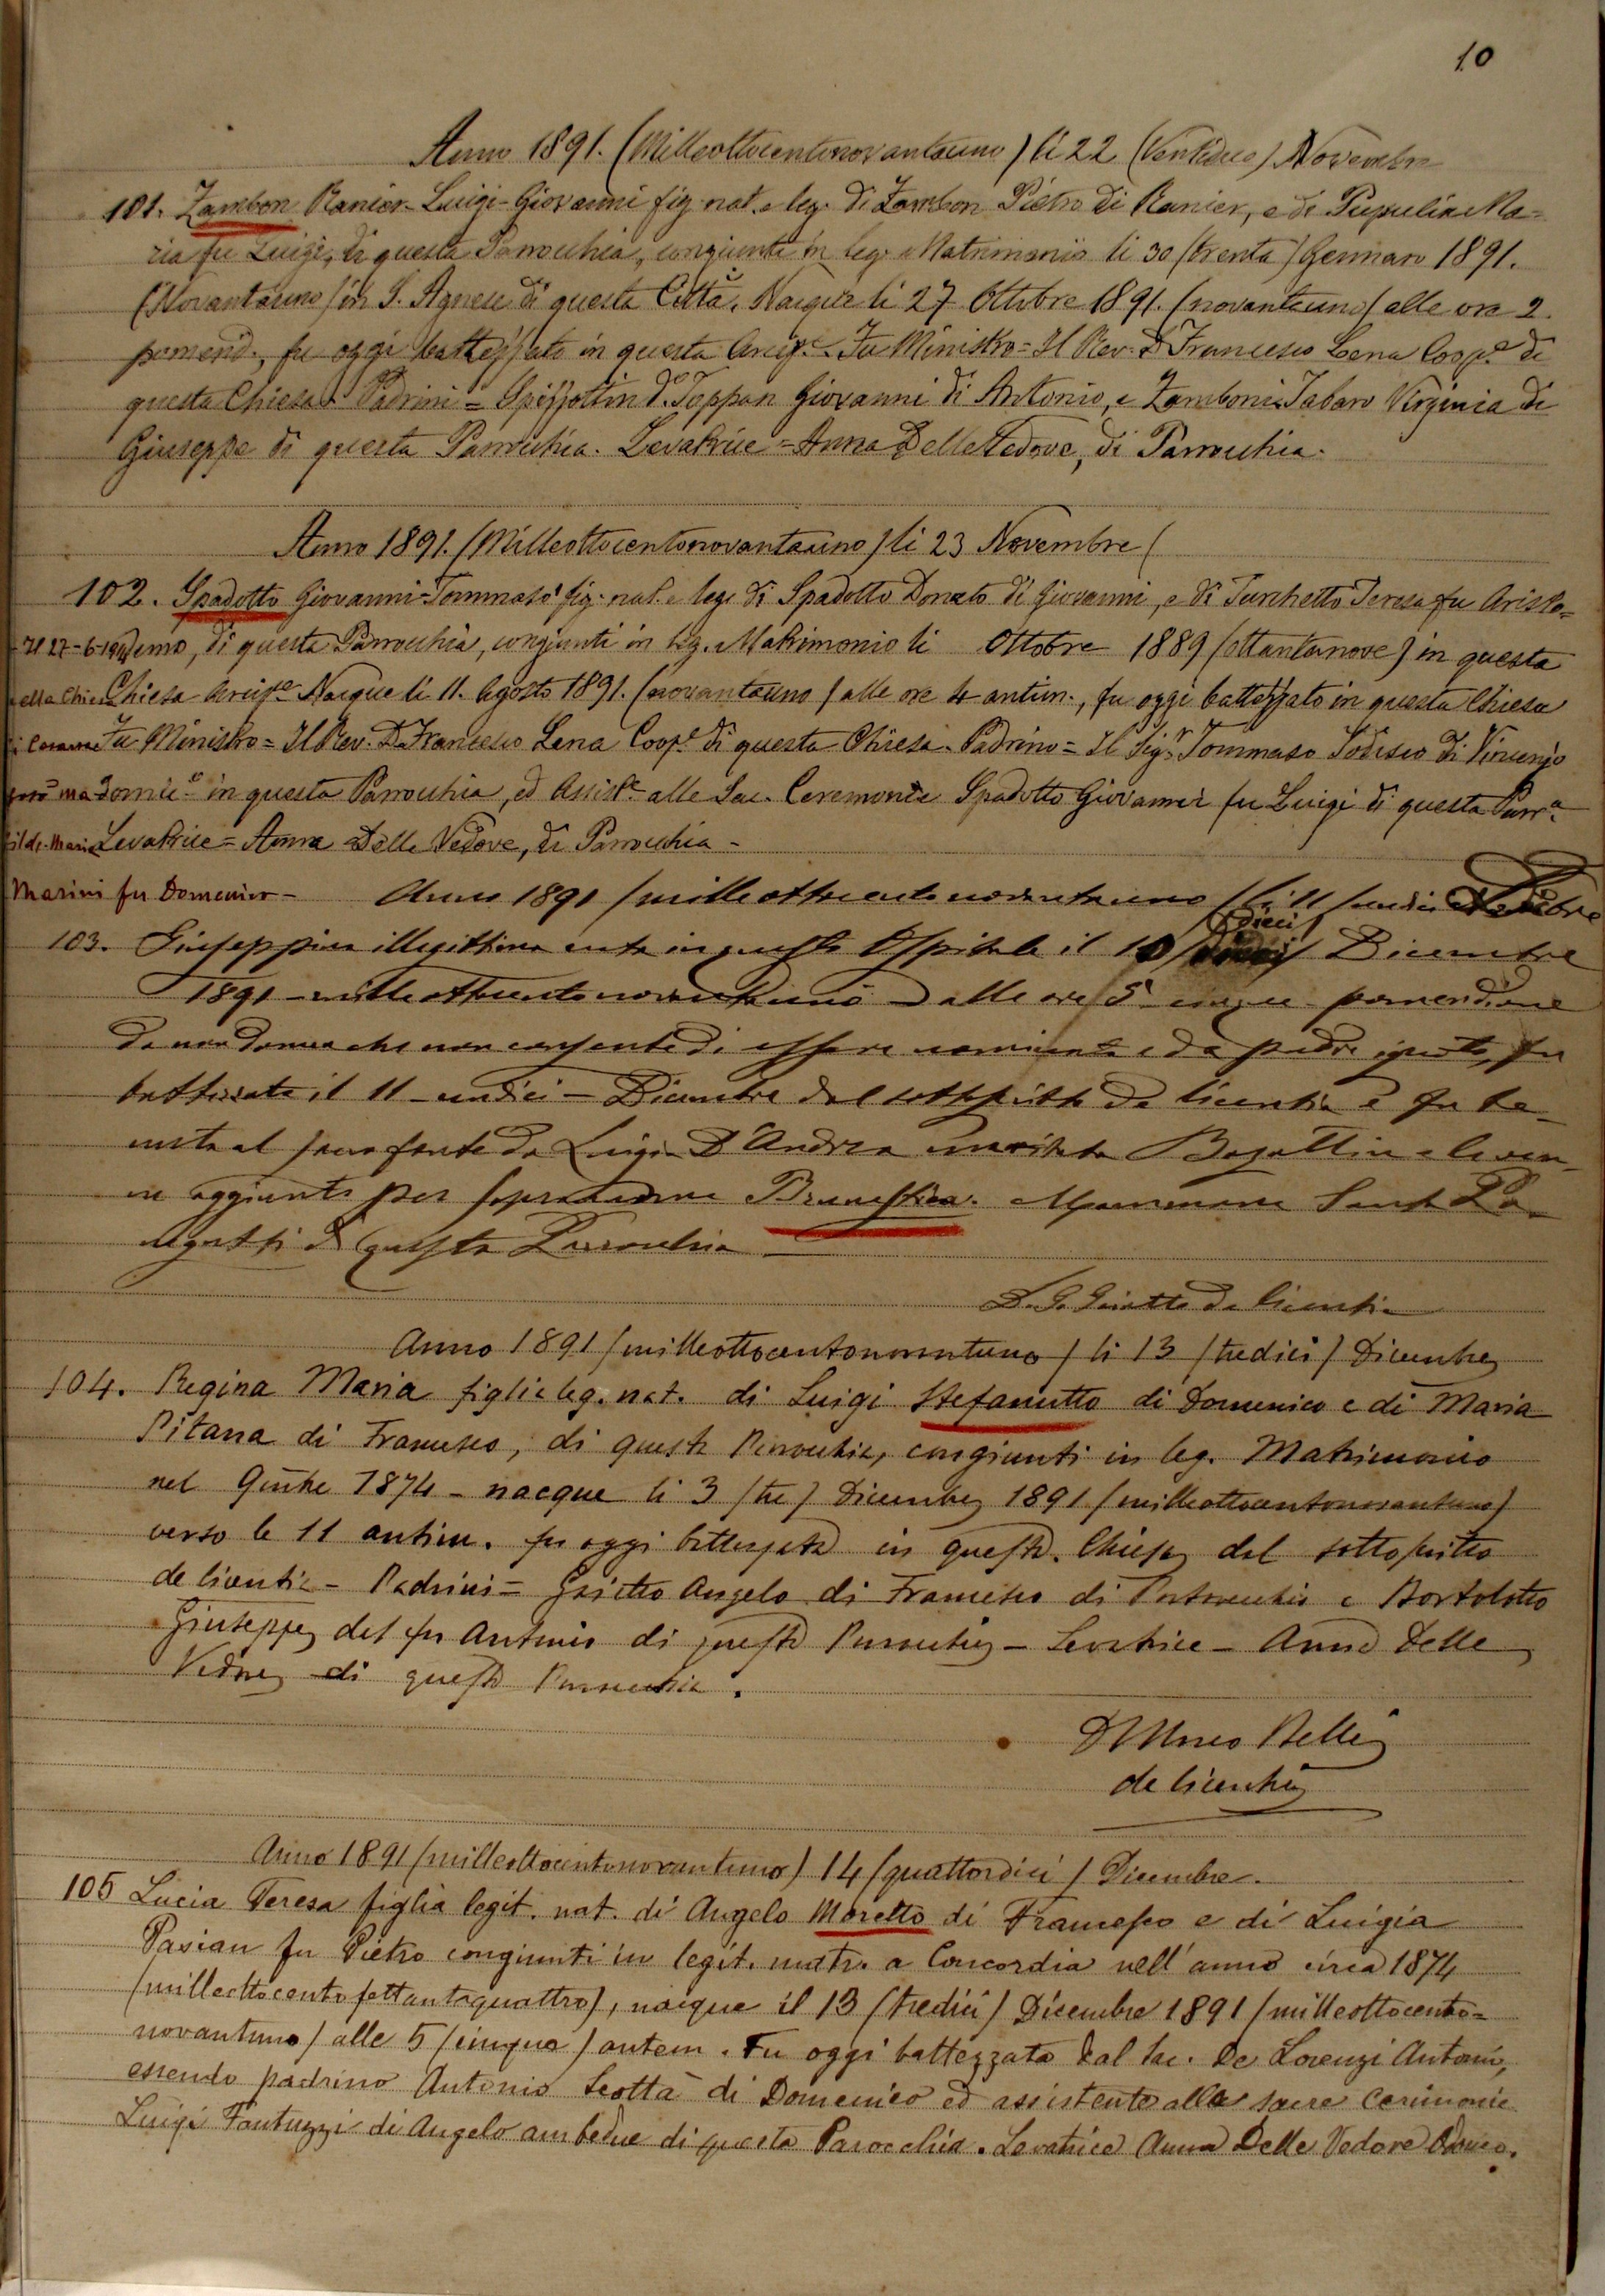 10
Anno 1891. (Milleottocentonovantauno) li 22 (Ventidue) Novembre
101. Zambon Ranier-Luigi-Giovanni fig. nat. e leg. di Zambon Pietro di Ranier, e di Pupulin Ma=
ria fu Luigi, di questa Parrocchia, congiunti in leg. Matrimonio li 30 (trenta) Gennaro 1891.
(Novantauno) in S. Agnese di questa Città. Nacque li 27 Ottobre 1891. (novantauno) alle ore 2.
pomerid., fu oggi battezzato in questa Arcip.e Fu Ministro = Il Rev. D. Francesco Lena Coop.e di
questa Chiesa. Padrini = Spizzottin d.o Toppan Giovanni di Antonio, e Zamboni Tabaro Virginia di
Giuseppe di questa Parrocchia. Levatrice = Anna Delle Vedove, di Parrocchia.
Anno 1891. (Milleottocentonovantauno) li 23 Novembre (
102. Spadotto Giovanni=Tommaso fig. nat. e leg. di Spadotto Donato di Giovanni, e di Turchetto Teresa fu Aristo=
- Il 27-6- demo, di questa Parrocchia, congiunti in leg. Matrimonio li Ottobre 1889 (ottantanove) in questa
nella Chiesa Chiesa Arcip.e Nacque li 11. Agosto 1891. (novantauno) alle ore 4 antim., fu oggi battezzato in questa Chiesa
Fu Ministro = Il Rev. D. Francesco Lena Coop.e di questa Chiesa. Padrino = Il Sig.r Tommaso Todisco di Vincenzo
sposò ma- domic.o in questa Parrocchia, ed Assist.e alle Sac. Ceremonie Spadotto Giovanni fu Luigi di questa Parr.a
tilde-Maria Levatrice = Anna Delle Vedove, di Parrocchia -
Marini fu Domenico - Anno 1891 (milleottocentonovantauno) li 11 (undici) Dicembre
103. Giuseppina illegittima nata in questo Ospitale il 10 (dieci) Dicembre
1891 - milleottocentonovantauno - alle ore 5 cinque pomeridiane
da una donna che non consente di essere nominata e da padre ignoto, fu
battezzata il 11 - undici - Dicembre dal sottoscritto de licentia e fu te-
nuta al sacro fonte da Luigia D'Andrea maritata Bozattin e le ven-
ne aggiunto per soprannome Mammana Santa
di questa Parrocchia
de licentia
Anno 1891 (milleottocentonovantuno) li 13 (tredici) Dicembre
104. Regina Maria figlia leg. nat. di Luigi Stefanutto di Domenico e di Maria
Pitana di Francesco, di questa Parrocchia, congiunti in leg. Matrimonio
nel 1874 - nacque li 3 (tre) Dicembre 1891 (milleottocentonovantuno)
verso le 11 antim. fu oggi battezzata in questa Chiesa dal sottoscritto
de licentia - Padrini = Angelo di Francesco di e Bortolotto
Giuseppe del fu Antonio di questa Parrocchia - Levatrice - Anna Delle
Vedove di questa Parrocchia.
D. Marco Belli
de licentia
Anno 1891 (milleottocentonovantuno) 14 (quattordici) Dicembre.
105 Lucia Teresa figlia legit. nat. di Angelo Moretto di Francesco e di Luigia
Pasian fu Pietro congiunti in legit. matr. a Concordia nell'anno circa 1874
(milleottocentosettantaquattro), nacque il 13 (tredici) Dicembre 1891 (milleottocento=
novantuno) alle 5 (cinque) antem. Fu oggi battezzata dal Sac. De Lorenzi Antonio,
essendo padrino Antonio Scottà di Domenico ed assistente alle sacre cerimonie
Luigi Fantuzzi di Angelo ambedue di questa Parocchia. Levatrice Anna Delle Vedove